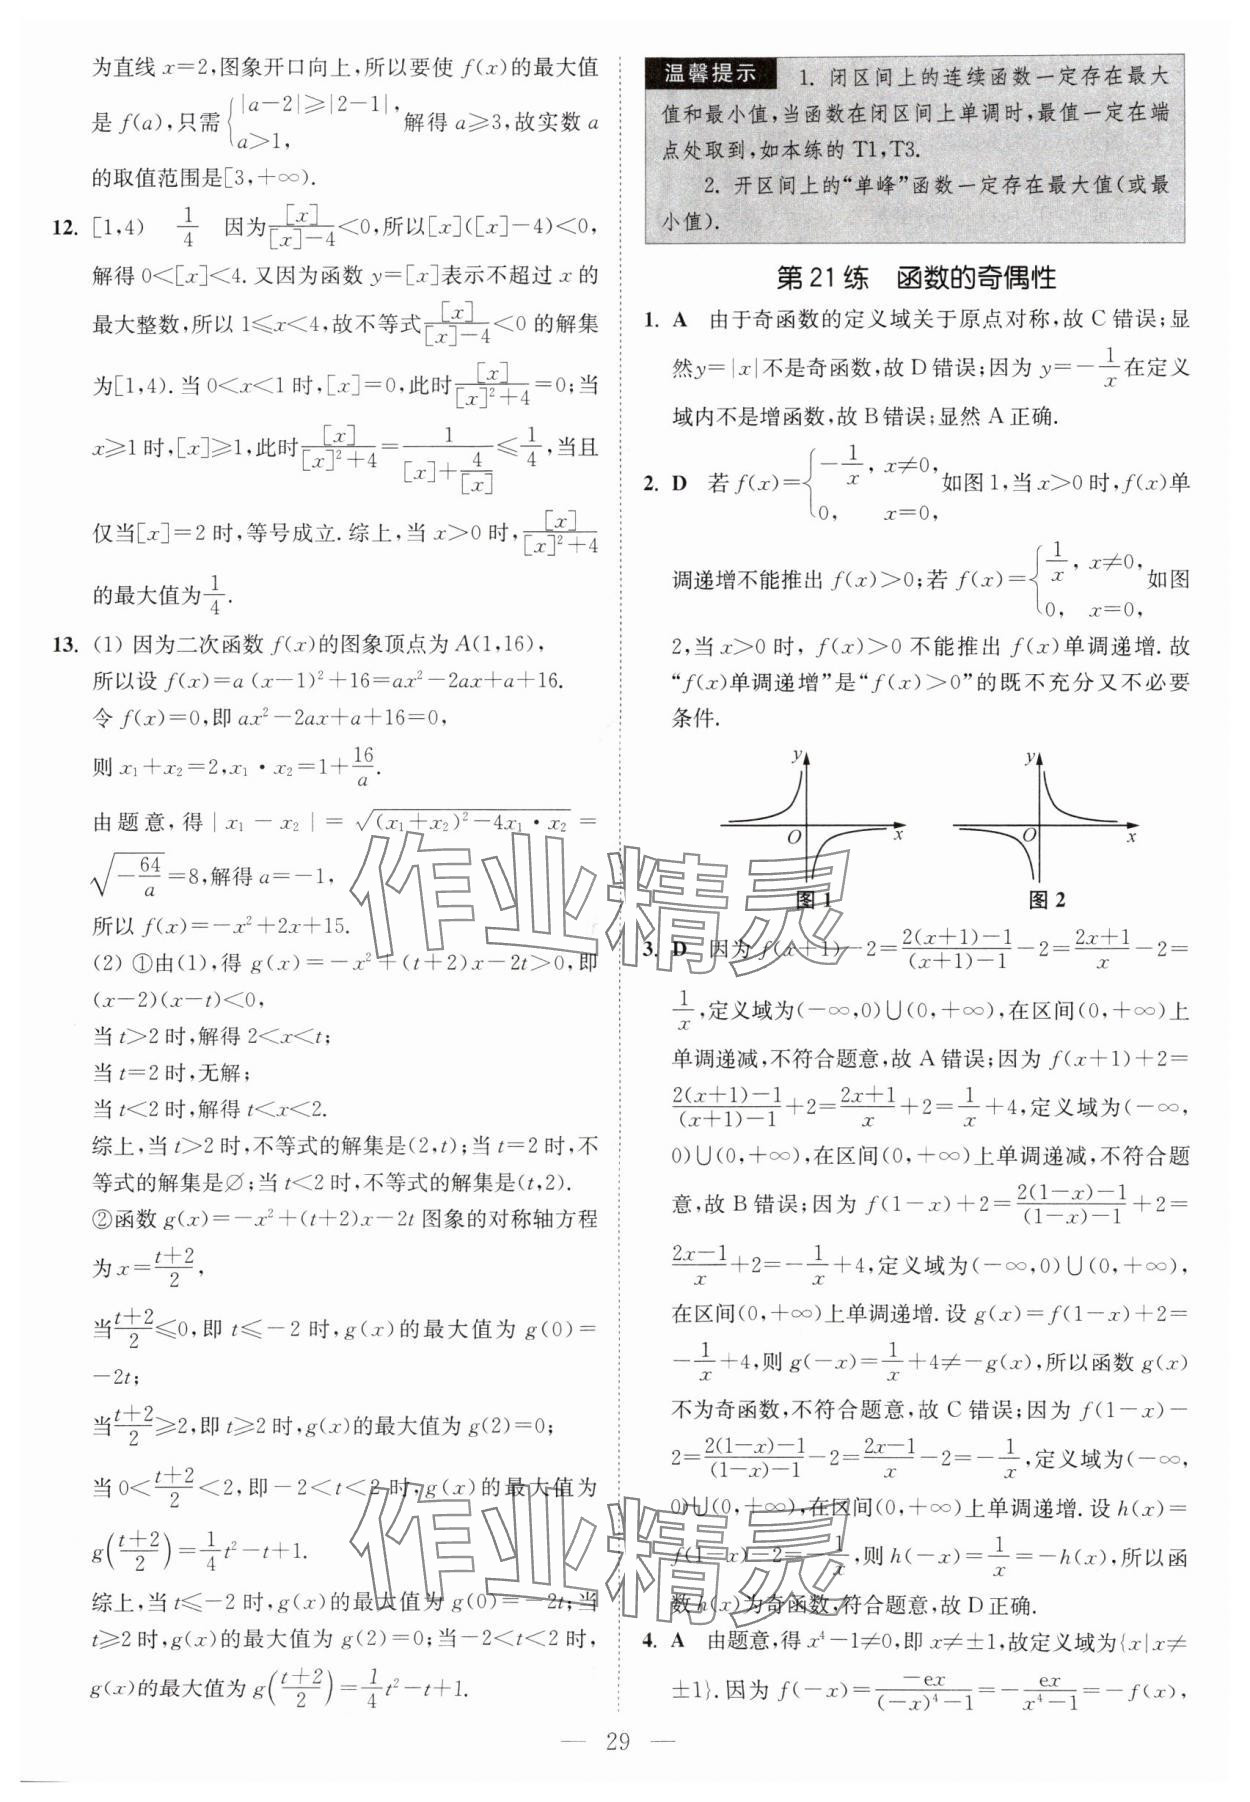 为直线 x=2,图象开口向上,所以要使 f(x)的最大值
是 f(a),只需{|a-2|≥|2-1|, a>1, 解得 a≥3,故实数 a
的取值范围是[3,+∞).
12. [1,4) 1/4 因为[x]/([x]-4)<0,所以[x]([x]-4)<0,
解得 0<[x]<4.又因为函数 y=[x]表示不超过 x 的
最大整数,所以 1≤x<4,故不等式[x]/([x]-4)<0 的解集
为[1,4).当 0<x<1 时,[x]=0,此时[x]/([x]²+4)=0;当
x≥1 时,[x]≥1,此时[x]/([x]²+4)=1/([x]+4/[x])≤1/4,当且
仅当[x]=2 时,等号成立.综上,当 x>0 时,[x]/([x]²+4)
的最大值为1/4.
13. (1) 因为二次函数 f(x)的图象顶点为 A(1,16),
所以设 f(x)=a (x-1)²+16=ax²-2ax+a+16.
令 f(x)=0,即 ax²-2ax+a+16=0,
则 x₁+x₂=2,x₁·x₂=1+16/a.
由题意,得|x₁-x₂|=√((x₁+x₂)²-4x₁·x₂)=
√(-64/a)=8,解得 a=-1,
所以 f(x)=-x²+2x+15.
(2) ①由(1),得 g(x)=-x²+(t+2)x-2t>0,即
(x-2)(x-t)<0,
当 t>2 时,解得 2<x<t;
当 t=2 时,无解;
当 t<2 时,解得 t<x<2.
综上,当 t>2 时,不等式的解集是(2,t);当 t=2 时,不
等式的解集是∅;当 t<2 时,不等式的解集是(t,2).
②函数 g(x)=-x²+(t+2)x-2t 图象的对称轴方程
为 x=(t+2)/2,
当(t+2)/2≤0,即 t≤-2 时,g(x)的最大值为 g(0)=
-2t;
当(t+2)/2≥2,即 t≥2 时,g(x)的最大值为 g(2)=0;
当 0<(t+2)/2<2,即-2<t<2 时,g(x)的最大值为
g((t+2)/2)=1/4t²-t+1.
综上,当 t≤-2 时,g(x)的最大值为 g(0)=-2t;当
t≥2 时,g(x)的最大值为 g(2)=0;当-2<t<2 时,
g(x)的最大值为 g((t+2)/2)=1/4t²-t+1.
温馨提示 1. 闭区间上的连续函数一定存在最大
值和最小值,当函数在闭区间上单调时,最值一定在端
点处取到,如本练的 T1,T3.
2. 开区间上的“单峰”函数一定存在最大值(或最
小值).
第 21 练 函数的奇偶性
1. A 由于奇函数的定义域关于原点对称,故 C 错误;显
然y=|x|不是奇函数,故 D 错误;因为 y=-1/x在定义
域内不是增函数,故 B 错误;显然 A 正确.
2. D 若 f(x)={-1/x, x≠0, 0, x=0, 如图 1,当 x>0 时,f(x)单
调递增不能推出 f(x)>0;若 f(x)={1/x, x≠0, 0, x=0, 如图
2,当 x>0 时, f(x)>0 不能推出 f(x)单调递增.故
“f(x)单调递增”是“f(x)>0”的既不充分又不必要
条件.
y
O
x
图 1
y
O
x
图 2
3. D 因为 f(x+1)-2=(2(x+1)-1)/((x+1)-1)-2=(2x+1)/x-2=
1/x,定义域为(-∞,0)∪(0,+∞),在区间(0,+∞)上
单调递减,不符合题意,故 A 错误;因为 f(x+1)+2=
(2(x+1)-1)/((x+1)-1)+2=(2x+1)/x+2=1/x+4,定义域为(-∞,
0)∪(0,+∞),在区间(0,+∞)上单调递减,不符合题
意,故 B 错误;因为 f(1-x)+2=(2(1-x)-1)/((1-x)-1)+2=
(2x-1)/x+2=-1/x+4,定义域为(-∞,0)∪(0,+∞),
在区间(0,+∞)上单调递增.设 g(x)=f(1-x)+2=
-1/x+4,则 g(-x)=1/x+4≠-g(x),所以函数 g(x)
不为奇函数,不符合题意,故 C 错误;因为 f(1-x)-
2=(2(1-x)-1)/((1-x)-1)-2=(2x-1)/x-2=-1/x,定义域为(-∞,
0)∪(0,+∞),在区间(0,+∞)上单调递增.设 h(x)=
f(1-x)-2=-1/x,则 h(-x)=1/x=-h(x),所以函
数 h(x)为奇函数,符合题意,故 D 正确.
4. A 由题意,得 x⁴-1≠0,即 x≠±1,故定义域为{x|x≠
±1}.因为 f(-x)=-ex/((-x)⁴-1)=-ex/(x⁴-1)=-f(x),
— 29 —
作业精灵
作业精灵